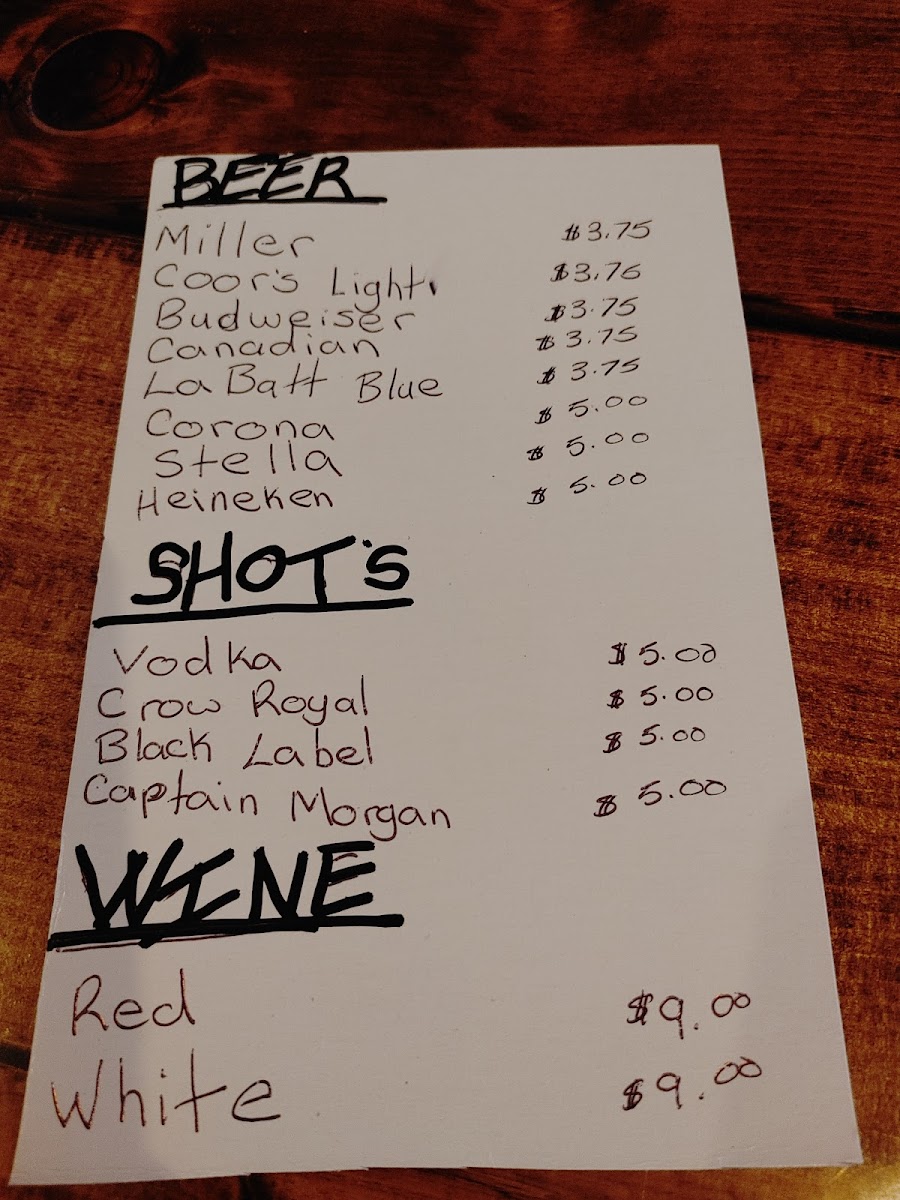 BEER
Miller $3.75
Coor's Light $3.76
Budweiser $3.75
Canadian $3.75
La Batt Blue $3.75
Corona $5.00
Stella $5.00
Heineken $5.00
SHOT'S
Vodka $5.00
Crow Royal $5.00
Black Label $5.00
Captain Morgan $5.00
WINE
Red $9.00
White $9.00